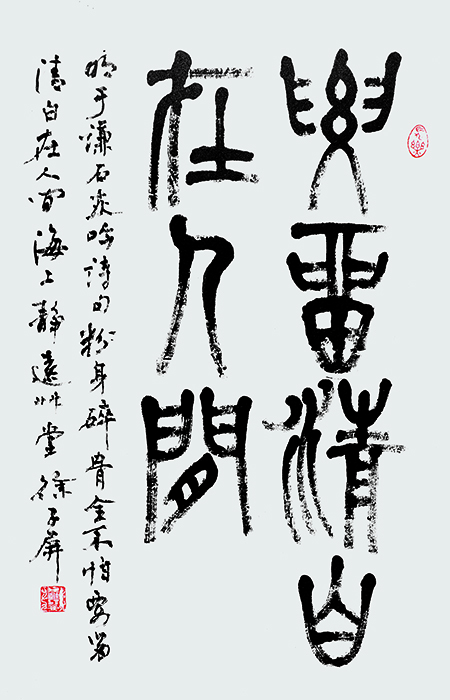 要留清白
在人間
明于谦石灰吟詩句粉身碎骨全不怕要留
清白在人间海上靜遠艸堂徐子屏